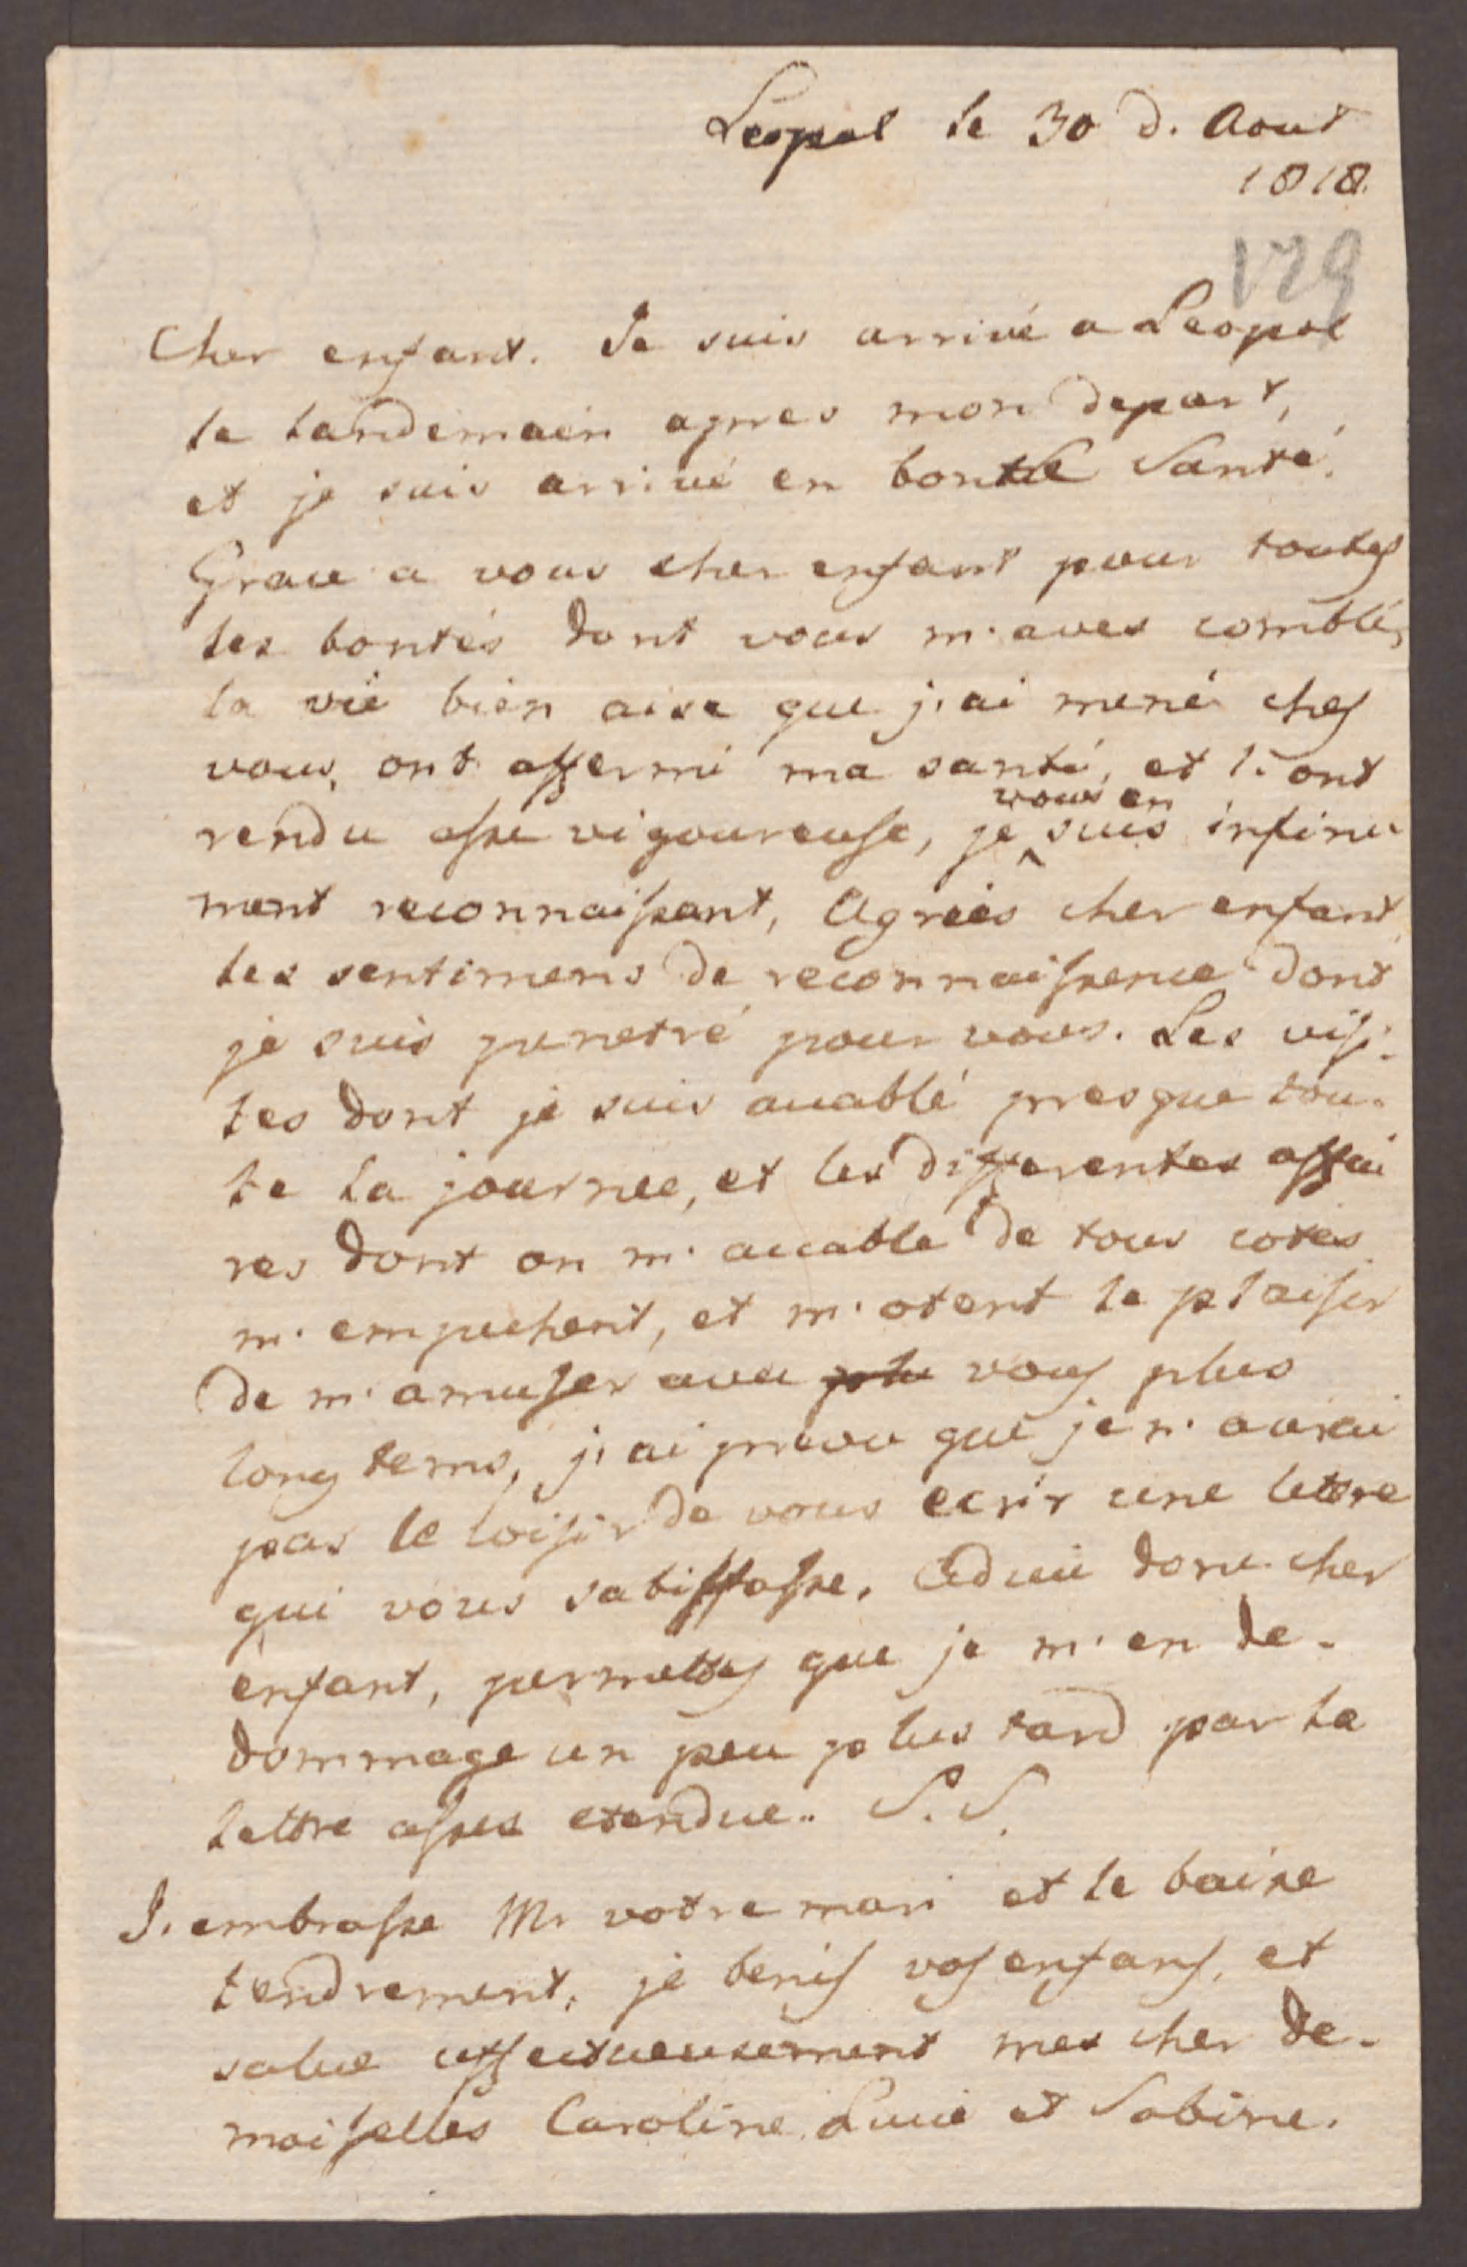 Leopol le 30 d. Aout
1818.
129
Cher enfant. Je suis arrivé a Leopol
le landemain apres mon depart,
et je suis arrivé en bonne Santé.
Grace a vous cher enfant pour toutes
les bontés dont vous m'aves comblé,
la vie bien aise que j'ai mené ches
vous, ont affermi ma santé, et l'ont
rendu asse vigoureuse, je vous en suis infini-
ment reconnaissant, Agreés cher enfant
les sentimens de reconnaissence dont
je suis penetré pour vous. Les visi-
tes dont je suis acablé presque tou-
te la journee, et les differentes affai
res dont on m'accable de tous cotés
m'empechent, et m'otent le plaisir
de m'amuser avec plu vous plus
long tems, j'ai prevu que je n'aurai
pas le loisir de vous ecrir une lettre
qui vous satisffasse. Adieu donc cher
enfant, permettes que je m'en de-
dommage un peu plus tard par la
lettre asses etendue.. S.S.
J'embrasse Mr votre mari et le baise
tendrement, je benis vos enfans, et
salue affectueusement mes cher de-
moiselles Caroline Lucie et Sabine.